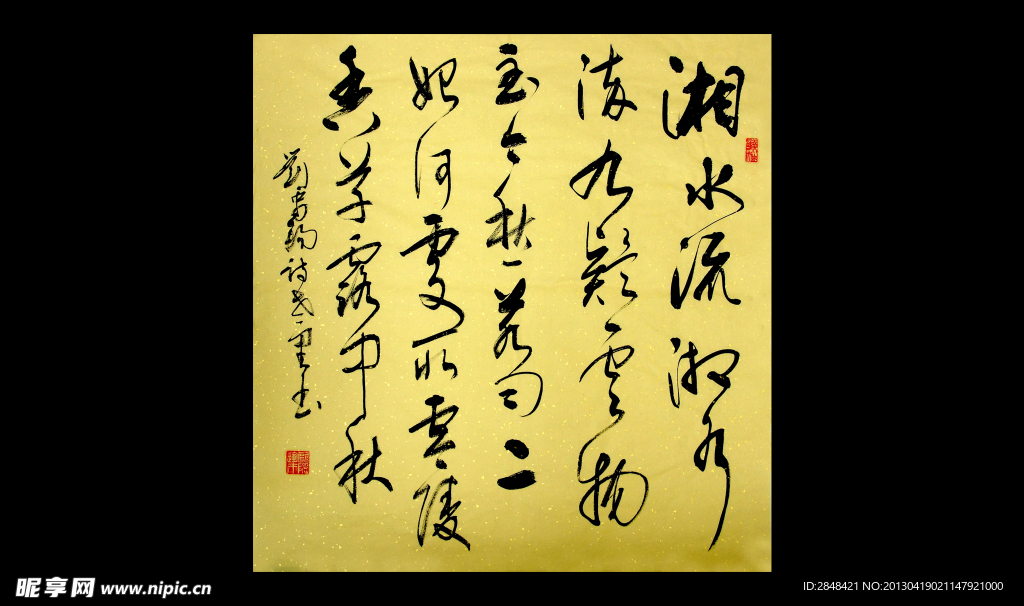 湘水流湘水
流九疑雲物
至今愁若问二
妃何處所零陵
香草露中秋
劉禹錫詩 書
昵享网 www.nipic.cn
ID:2848421 NO:20130419021147921000